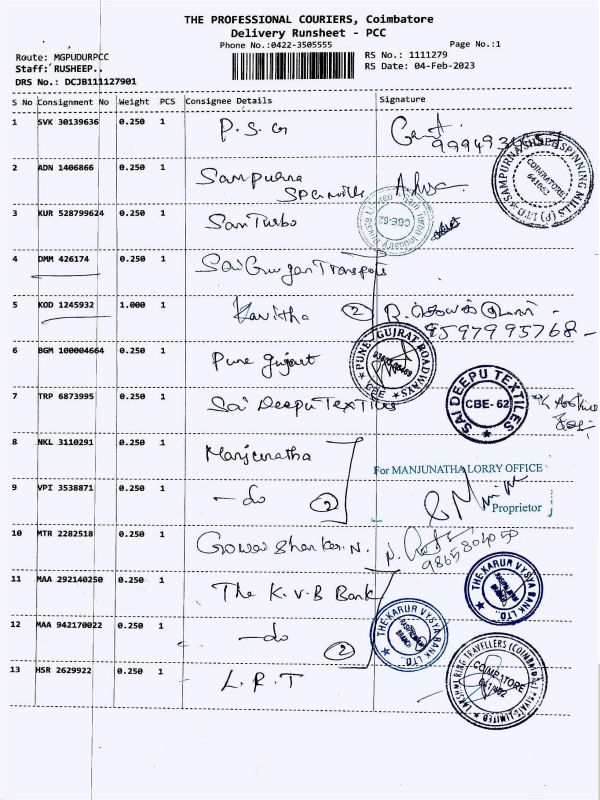 THE PROFESSIONAL COURIERS, Coimbatore
Delivery Runsheet - PCC
Phone No.:0422-3505555 Page No.:1
Route: MGPUDURPCC RS No.: 1111279
Staff: RUSHEEP.. RS Date: 04-Feb-2023
DRS No.: DCJB111127901
S No Consignment No Weight PCS Consignee Details Signature
1 SVK 30139636 0.250 1 P.S.G
2 ADN 1406866 0.250 1 Sampurna
SAMPURNA SPINNING MILLS (P) LTD COIMBATORE 641062
3 KUR 528799624 0.250 1 San Turbo
CBE-62
4 DMM 426174 0.250 1 Sai Gurgan Transports
5 KOD 1245932 1.000 1 Kavitha 2
9597995768
6 BGM 100004664 0.250 1 Pune gujart
PUNE GUJRAT ROADWAYS CBE
7 TRP 6873995 0.250 1 Sai Deepu Textiles
SAI DEEPU TEXTILES CBE-62
8 NKL 3110291 0.250 1 Manjunatha
For MANJUNATHA LORRY OFFICE
9 VPI 3538871 0.250 1 - do 2
Proprietor
10 MTR 2282518 0.250 1 Gowri Shanker.N.
11 MAA 292140250 0.250 1 The K.V.B Bank
THE KARUR VYSYA BANK LTD.
12 MAA 942170022 0.250 1 - do 2
THE KARUR VYSYA BANK LTD. BRANCH
13 HSR 2629922 0.250 1 L.R.T
TRAVELLERS (COIMBATORE) PRIVATE LIMITED COIMBATORE